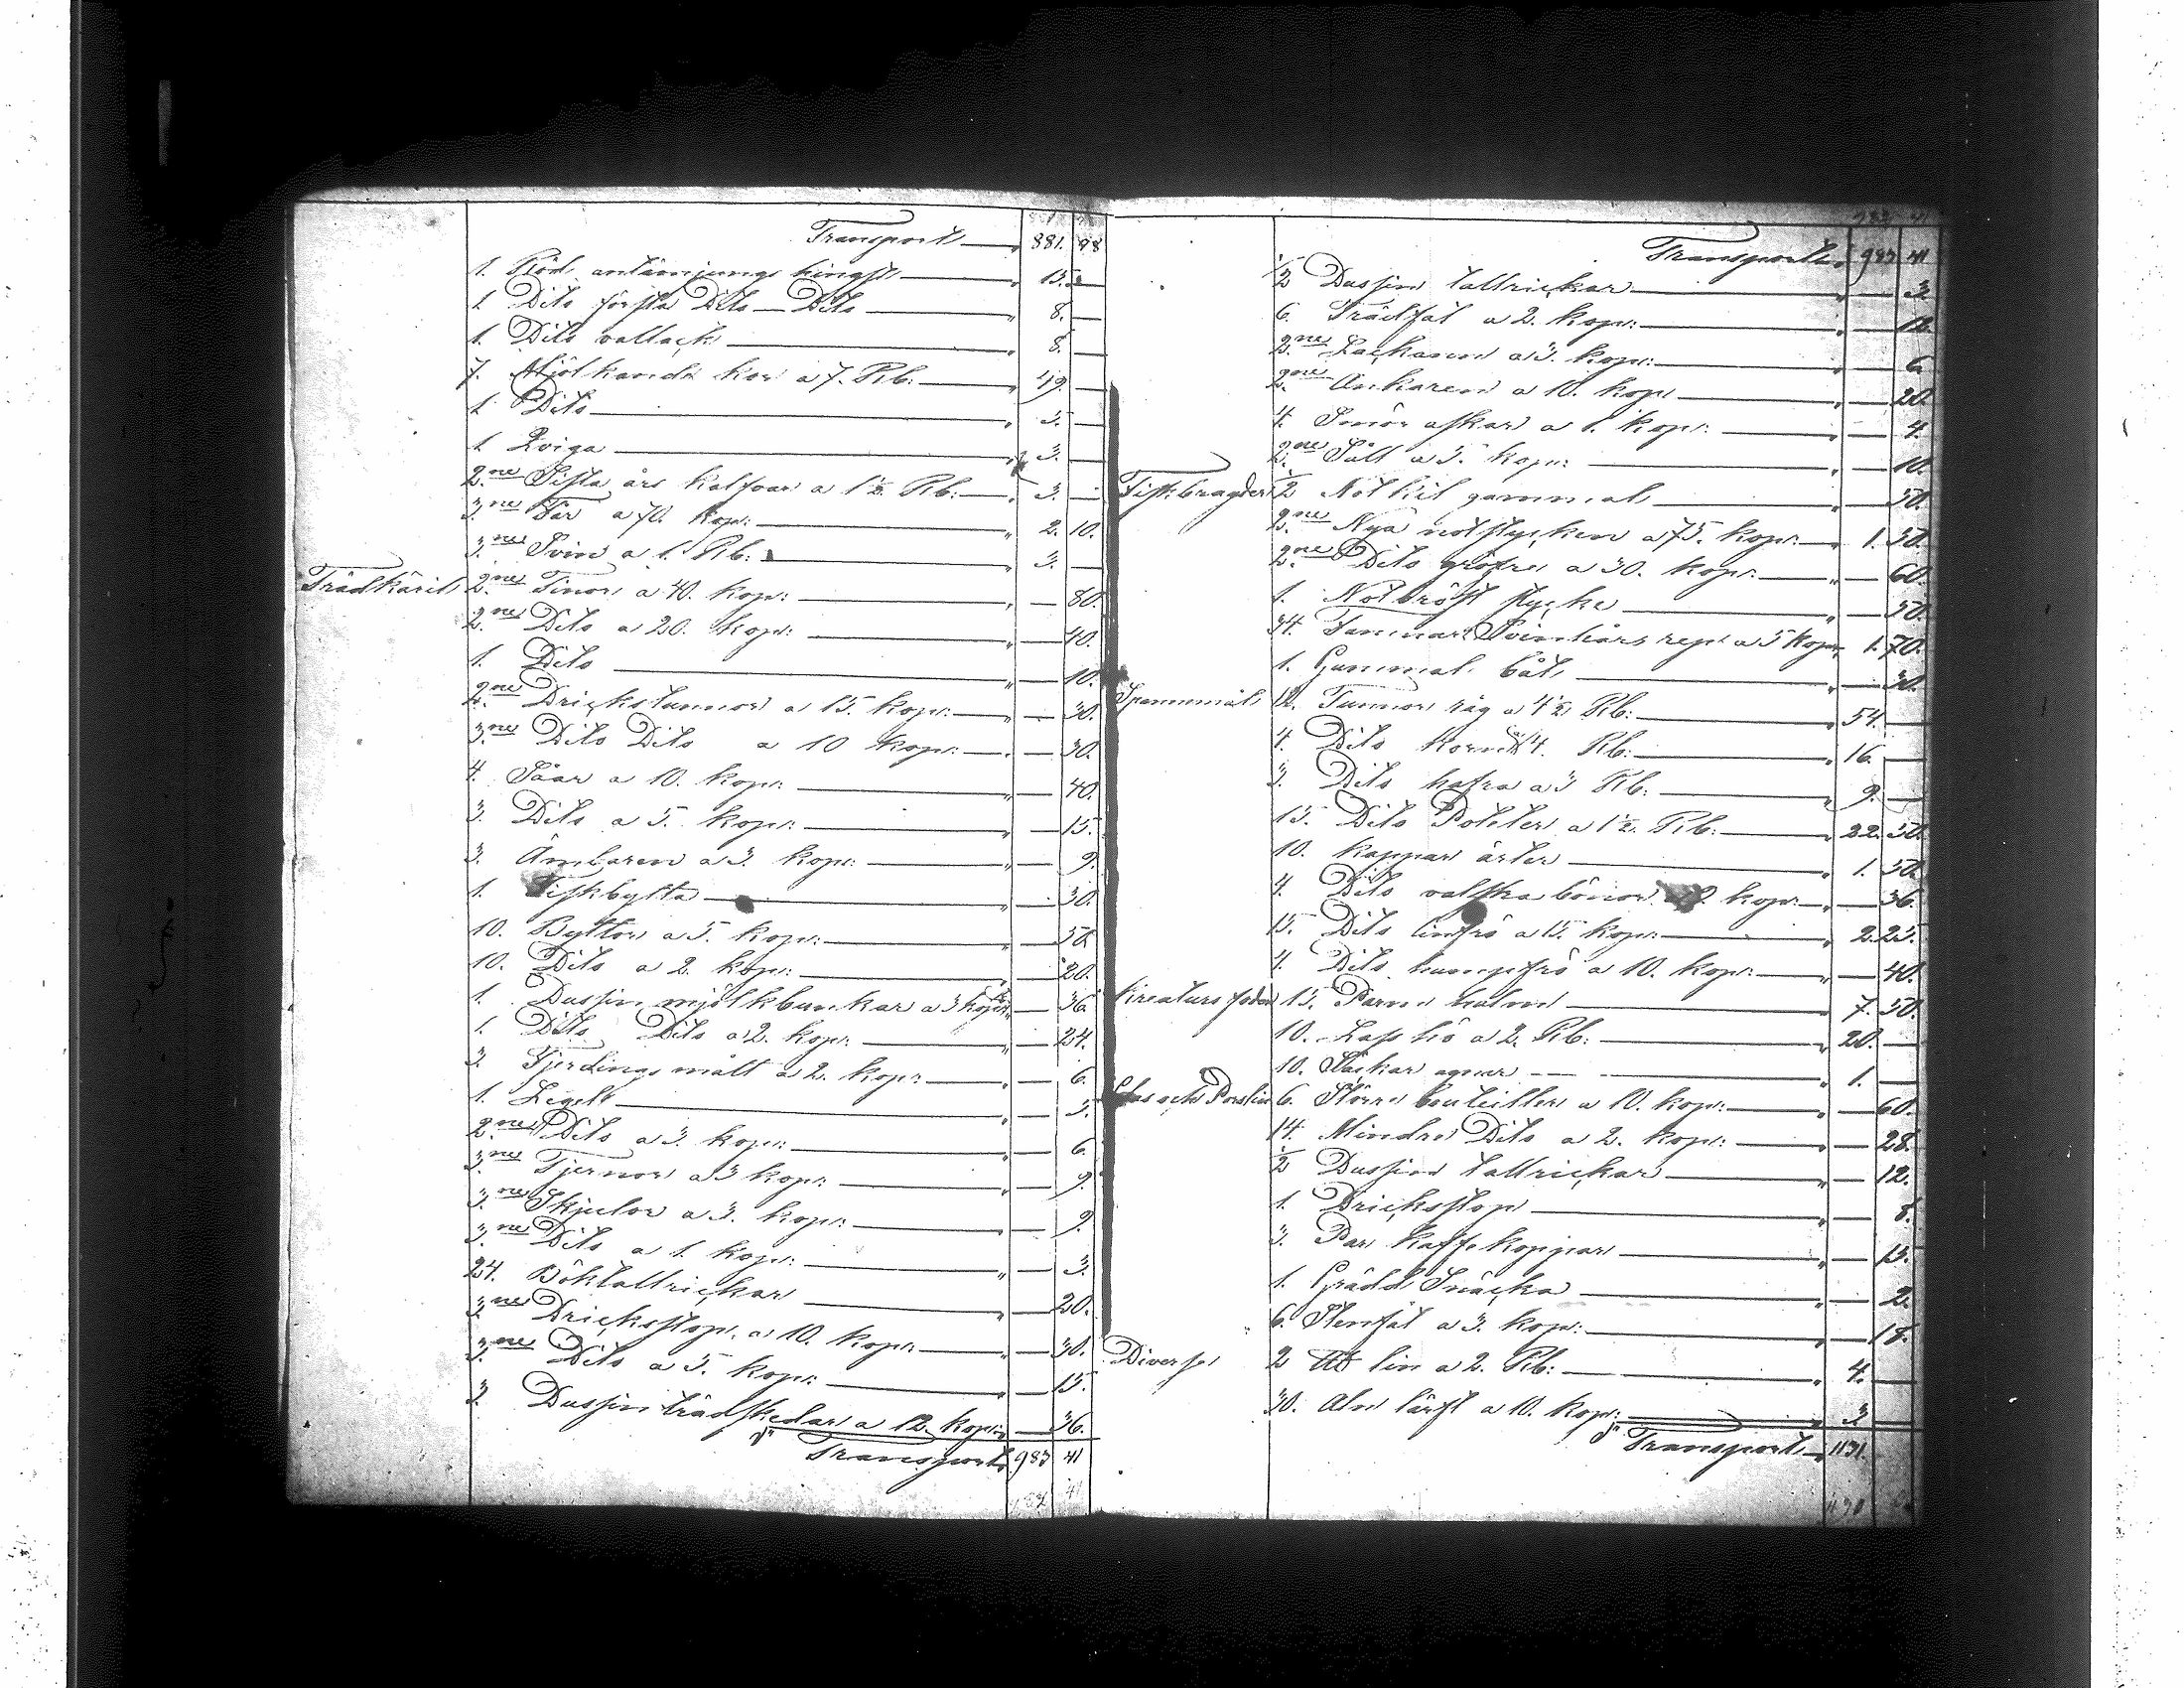 Transport 881. 98
1. Röd antämjungs hingst 15. —
1. Dito första Dito — Dito 8. —
1. Dito vallack 8. —
7. Mjölkande kor a 7. Rb. 49. —
1. Dito 5. —
1. Qviga 3. —
2ne Sista års kalfvar a 1½ Rb: 3. —
3ne Får a 70. kop: 2. 10.
3ne Svin a 1. Rb: 3. —
Trädkäril 2ne Tinor a 40. kop: — 80.
2ne Dito a 20. kop: — 40.
1. Dito — 10.
2ne Drickstunnor a 15. kop: — 30.
3ne Dito Dito a 10 kop: — 30.
4. Såar a 10. kop: — 40.
3. Dito a 5. kop: — 15.
3. Ämbaren a 3. kop: — 9.
1. Fiskbytta — 30.
10. Byttor a 5. kop: — 50.
10. Dito a 2. kop: — 20.
1. Dussin mjölkbunkar a 3 kop: — 36.
1. Dito Dito a 2. kop: — 24.
3. Fjerdings mått a 2. kop: — 6.
1. Legelt — 5.
2ne Dito a 3. kop: — 6.
3ne Tjernor a 3 kop: — 9.
3ne Skjulor a 3. kop: — 9.
3ne Dito a 1. kop: — 3.
24. Böktallrickar — 20.
3ne Dricksstop a 10. kop: — 30.
3ne Dito a 5. kop: — 15.
3 Dussin trädskedar a 12. kop: — 36.
Transport 983 41
Transport 983 41
½ Dussin tallrickar — 3.
6. Trädfat a 2. kop: — 12.
2ne Lackaren a 3. kop: — 6.
2ne Ankaren a 10. kop — 20.
4. Smör askar a 1. kop: — 4.
2ne Såll a 5. kop: — 10.
Fiskbragder ½ Not kil gammal — 50.
2ne Nya notstycken a 75. kop: 1. 50.
2ne Dito gröfre a 30. kop: — 60.
1. Notbröst stycke — 50.
34. Famnar Svinhårs rep a 5 kop: 1. 70.
1. Gammal båt — 30.
Spannmål 12. Tunnor råg a 4½ Rb: 54. —
4. Dito korn a 4. Rb: 16. —
3. Dito hafra a 3 Rb: 9. —
15. Dito Poteter a 1½. Rb: 22. 50.
10. kappar ärter 1. 50.
4. Dito valska bönor a 9. kop: — 36.
15. Dito linfrö a 15. kop: 2. 25.
4. Dito hampfrö a 10. kop: — 40.
Kreatursfoder 15. Parm halm 7. 50.
10. Lass hö a 2. Rb: 20. —
10. Säckar agnar 1. —
Glas och Porslin 6. Större bouteiller a 10. kop: — 60.
14. Mindre Dito a 2. kop: — 28.
½ Dussin tallrickar — 12.
1. Dricksstop — 8.
3. Par kaffekoppar — 15.
1. Grädd Snäcka — 2.
6. Stenfat a 3. kop: — 18.
Diverse 2 lb lin a 2. Rb: 4. —
30. Aln lärft a 10. kop: 3
Transport 1131.